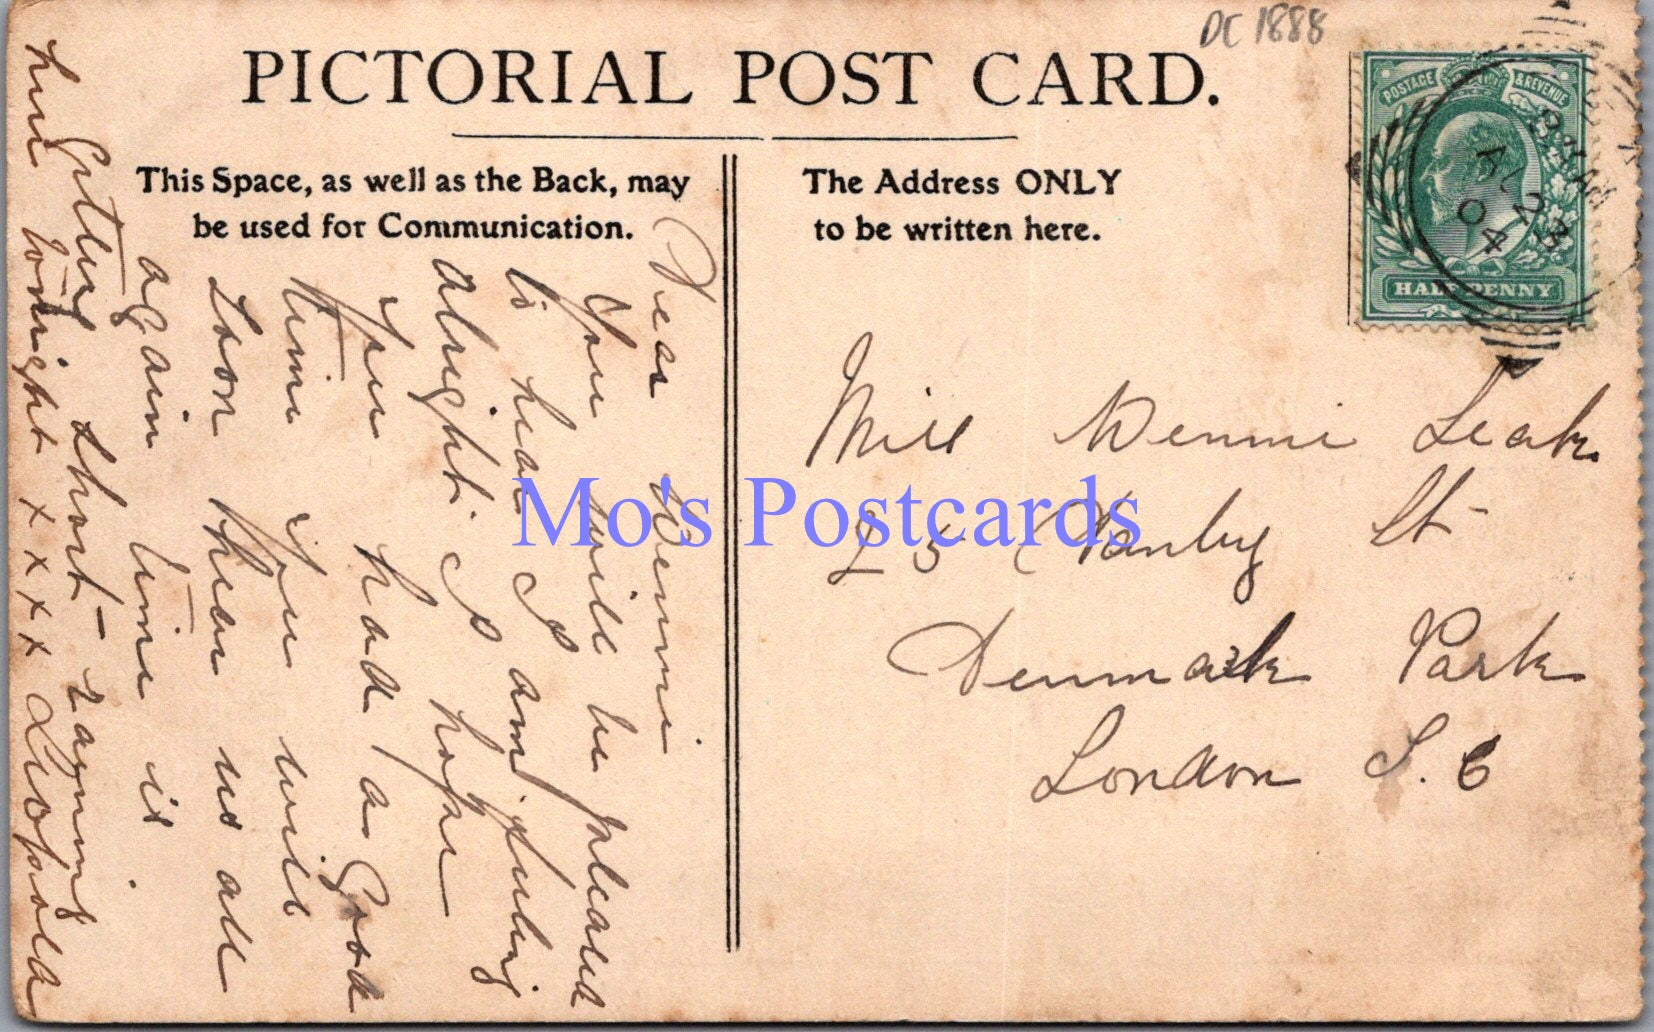 DC 1888
PICTORIAL POST CARD.
This Space, as well as the Back, may
be used for Communication.
The Address ONLY
to be written here.
POSTAGE & REVENUE
HALFPENNY
AU 23
04
Miss Wennie Leak
25 Hanby St
Denmark Park
London S. E
Dear Wennie
You will be pleased
to hear I am feeling
alright. I hope
you had a Good
time you will
soon hear us all
again time is
getting short
her tonight x x x x Leopold
Mo's Postcards